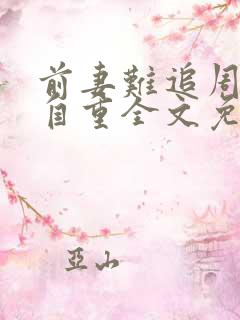 前妻難追周
自重全文免
亞山